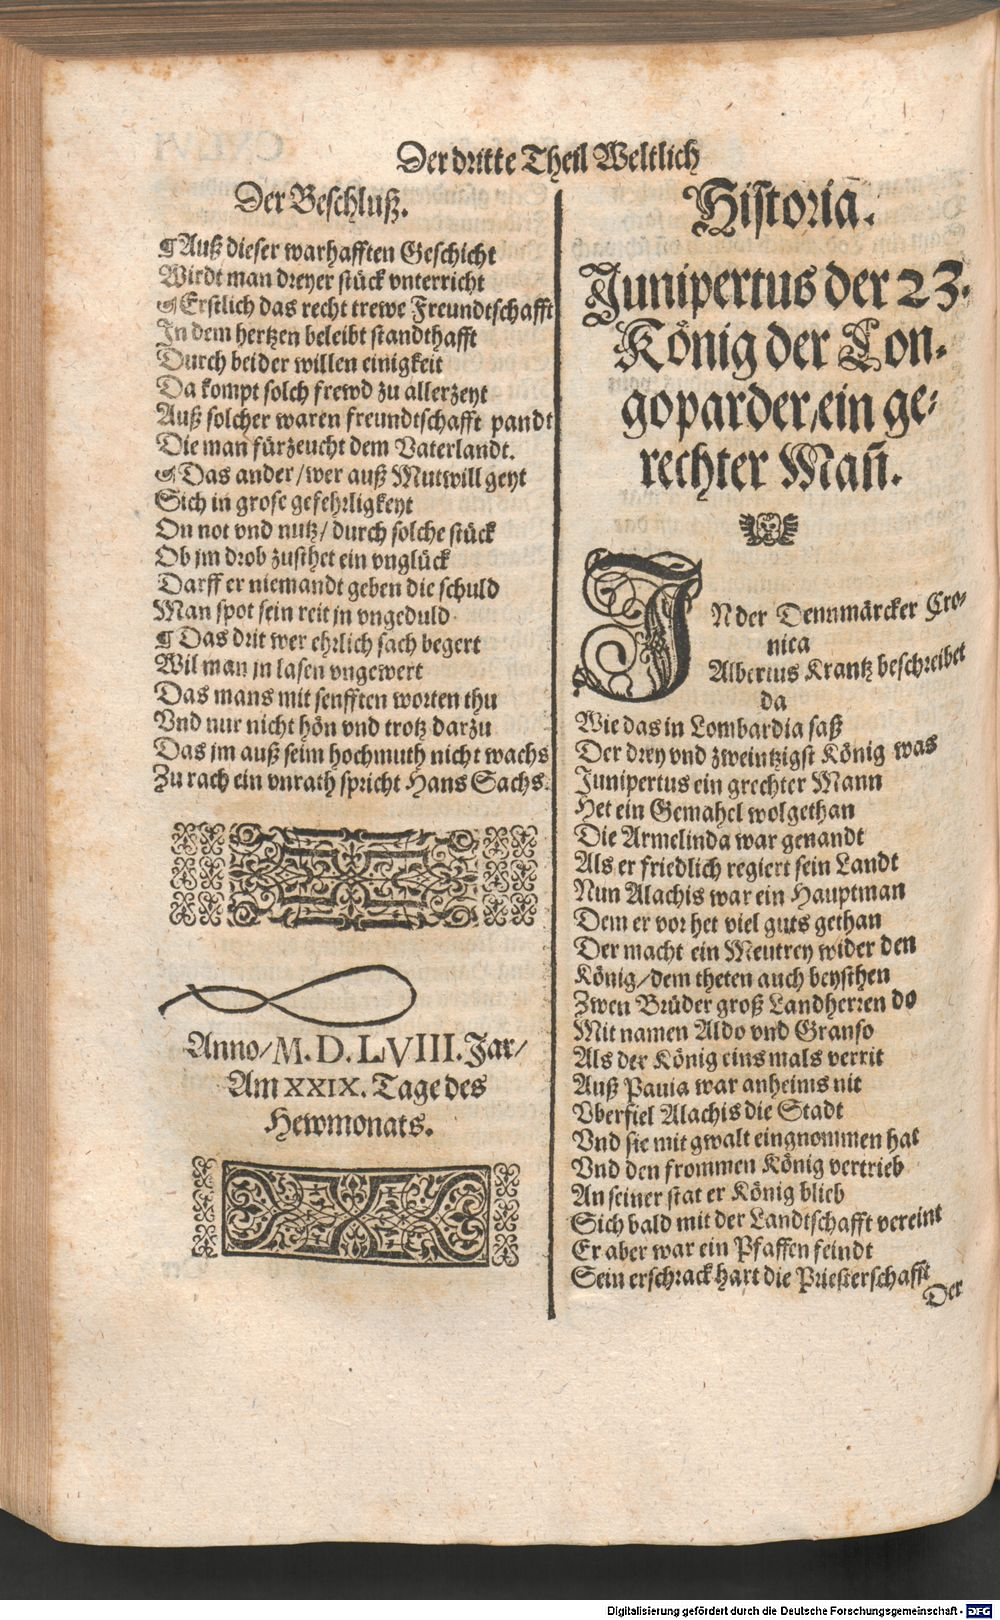 Der dritte Theil Weltlich
Der Beschluß.
¶ Auß dieser warhafften Geschicht
Wirdt man dreyer stück vnterricht
¶ Erstlich das recht trewe Freundtschafft
In dem hertzen beleibt standthafft
Durch beider willen einigkeit
Da kompt solch frewd zu allerzeyt
Auß solcher waren freundtschafft pandt
Die man fürzeucht dem Vaterlandt.
¶ Das ander/wer auß Mutwill geyt
Sich in grose gefehrligkeyt
On not vnd nutz/ durch solche stück
Ob jm drob zusthet ein vnglück
Darff er niemandt geben die schuld
Man spot sein reit jn vngeduld.
¶ Das drit wer ehrlich sach begert
Wil man jn lasen vngewert
Das mans mit senfften worten thu
Vnd nur nicht hön vnd trotz darzu
Das jm auß seim hochmuth nicht wachs
Zu rach ein vnrath spricht Hans Sachs.
Anno/M.D.LVIII.Jar/
Am XXIX. Tage des
Hewmonats.
Historia.
Junipertus der 23.
König der Lon-
goparder/ein ge-
rechter Mañ.
IN der Dennmärcker Cro-
nica
Albertus Krantz beschreibet
da
Wie das in Lombardia saß
Der drey vnd zweintzigst König was
Junipertus ein grechter Mann
Het ein Gemahel wolgethan
Die Armelinda war genandt
Als er friedlich regiert sein Landt
Nun Alachis war ein Hauptman
Dem er vor het viel guts gethan
Der macht ein Meutrey wider den
König/dem theten auch beysthen
Zwen Brüder groß Landherren do
Mit namen Aldo vnd Granso
Als der König eins mals verrit
Auß Pauia war anheims nit
Vberfiel Alachis die Stadt
Vnd sie mit gwalt eingnommen hat
Vnd den frommen König vertrieb
An seiner stat er König blieb
Sich bald mit der Landtschafft vereint
Er aber war ein Pfaffen feindt
Sein erschrack hart die Priesterschafft
Der
Digitalisierung gefördert durch die Deutsche Forschungsgemeinschaft - DFG